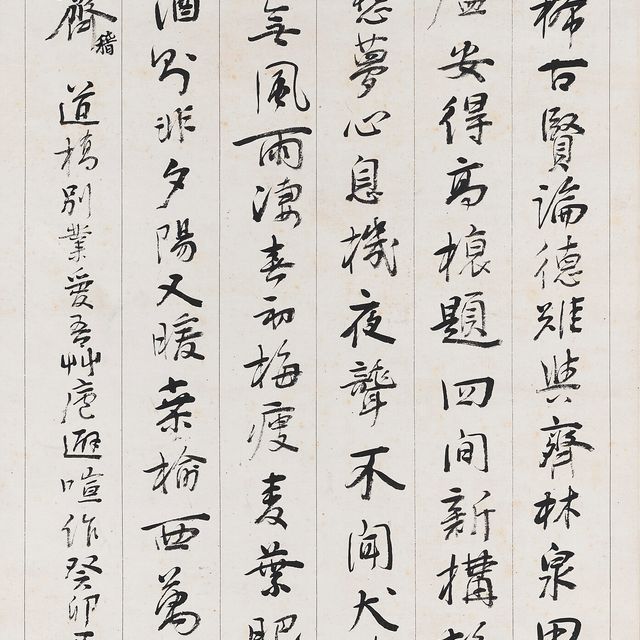 古賢論德難與齊林泉
安得高榱題四間新構
夢心息機夜聾不聞犬
無風雨淒春初梅瘦麥葉肥
酒別非夕陽又暖桑榆西萬
齊稽道橋別業愛吾艸廬避喧作癸卯